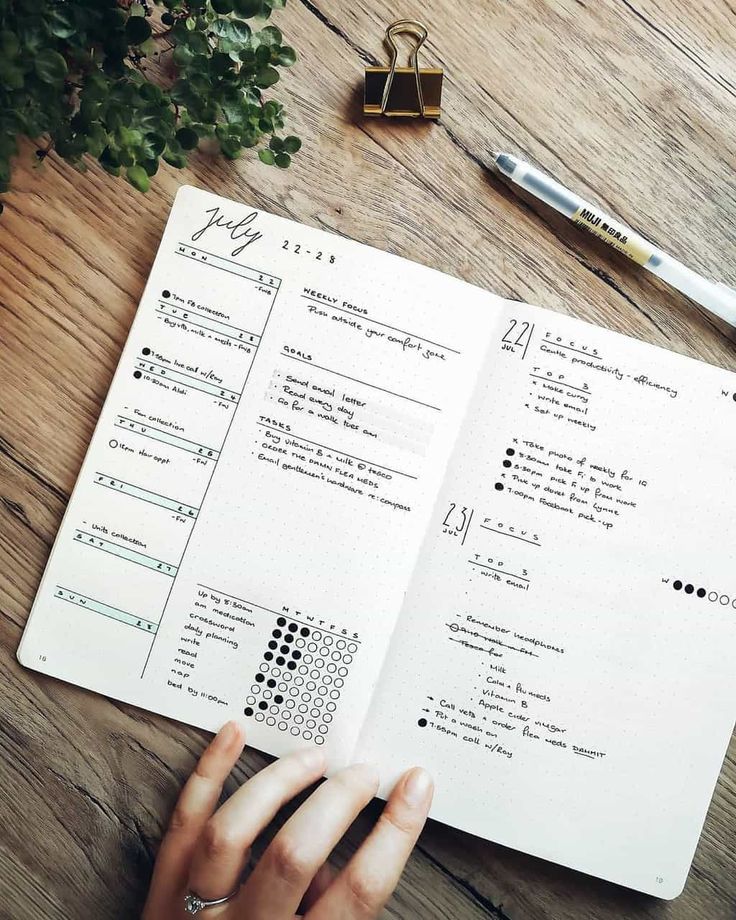 July 22-28
MON 22
-FWB
7pm FB collection
TUE 23
- Buy vits, milk & meds -FWB
7:55pm live call w/Ray
WED 24
-FWB
10:30am Aldi
- Fan collection
THU 25
-FWB
12pm Hair appt
FRI 26
-FWB
- Units collection
SAT 27
SUN 28
WEEKLY FOCUS
Push outside your comfort zone
GOALS
· Send email letter
· Read every day
· Go for a walk
TASKS
· Buy vitamin B + milk @ tesco
· ORDER THE DAMN FLEA MEDS
· Email gentlemen's hardware re: compass
M T W T F S S
up by 8:30am
am medication
crossword
daily planning
write
read
move
nap
bed by 11:00pm
18
22 JUL
FOCUS
Gentle productivity - efficiency
W
TOP 3
× Make curry
· Write email
× Set up weekly
× Take photo of weekly for IG
8:30am take Fi to work
5:30pm pick Fi up from work
× Pick up duvet from Lynne
7:00pm Facebook pick-up
23 JUL
FOCUS
W
TOP 3
· Write email
- Remember headphones
· Milk
· Calm + flu meds
· Vitamin B
· Apple cider vinegar
→ Call vets & order flea meds DAMMIT
→ Put a wash on
7:55pm call w/Ray
19
MUJI 無印良品